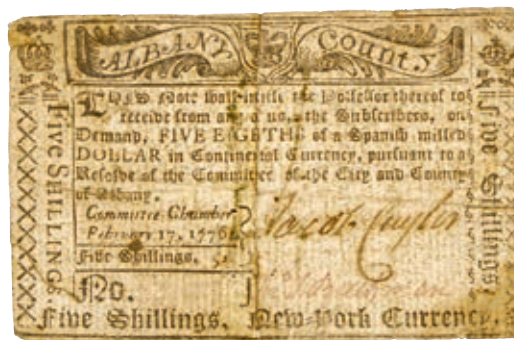 ALBANY County
THIS Note shall intitle the Possessor thereof to
receive from any of us, the Subscribers, on
Demand, FIVE EIGHTHS of a Spanish milled
DOLLAR in Continental Currency, pursuant to a
Resolve of the Committee of the City and County
of Albany.
Committee-Chamber
February 17, 1776
Five Shillings.
Jacob Cuyler
No.
Five Shillings. New-York Currency.
FIVE SHILLINGS.
Five Shillings.